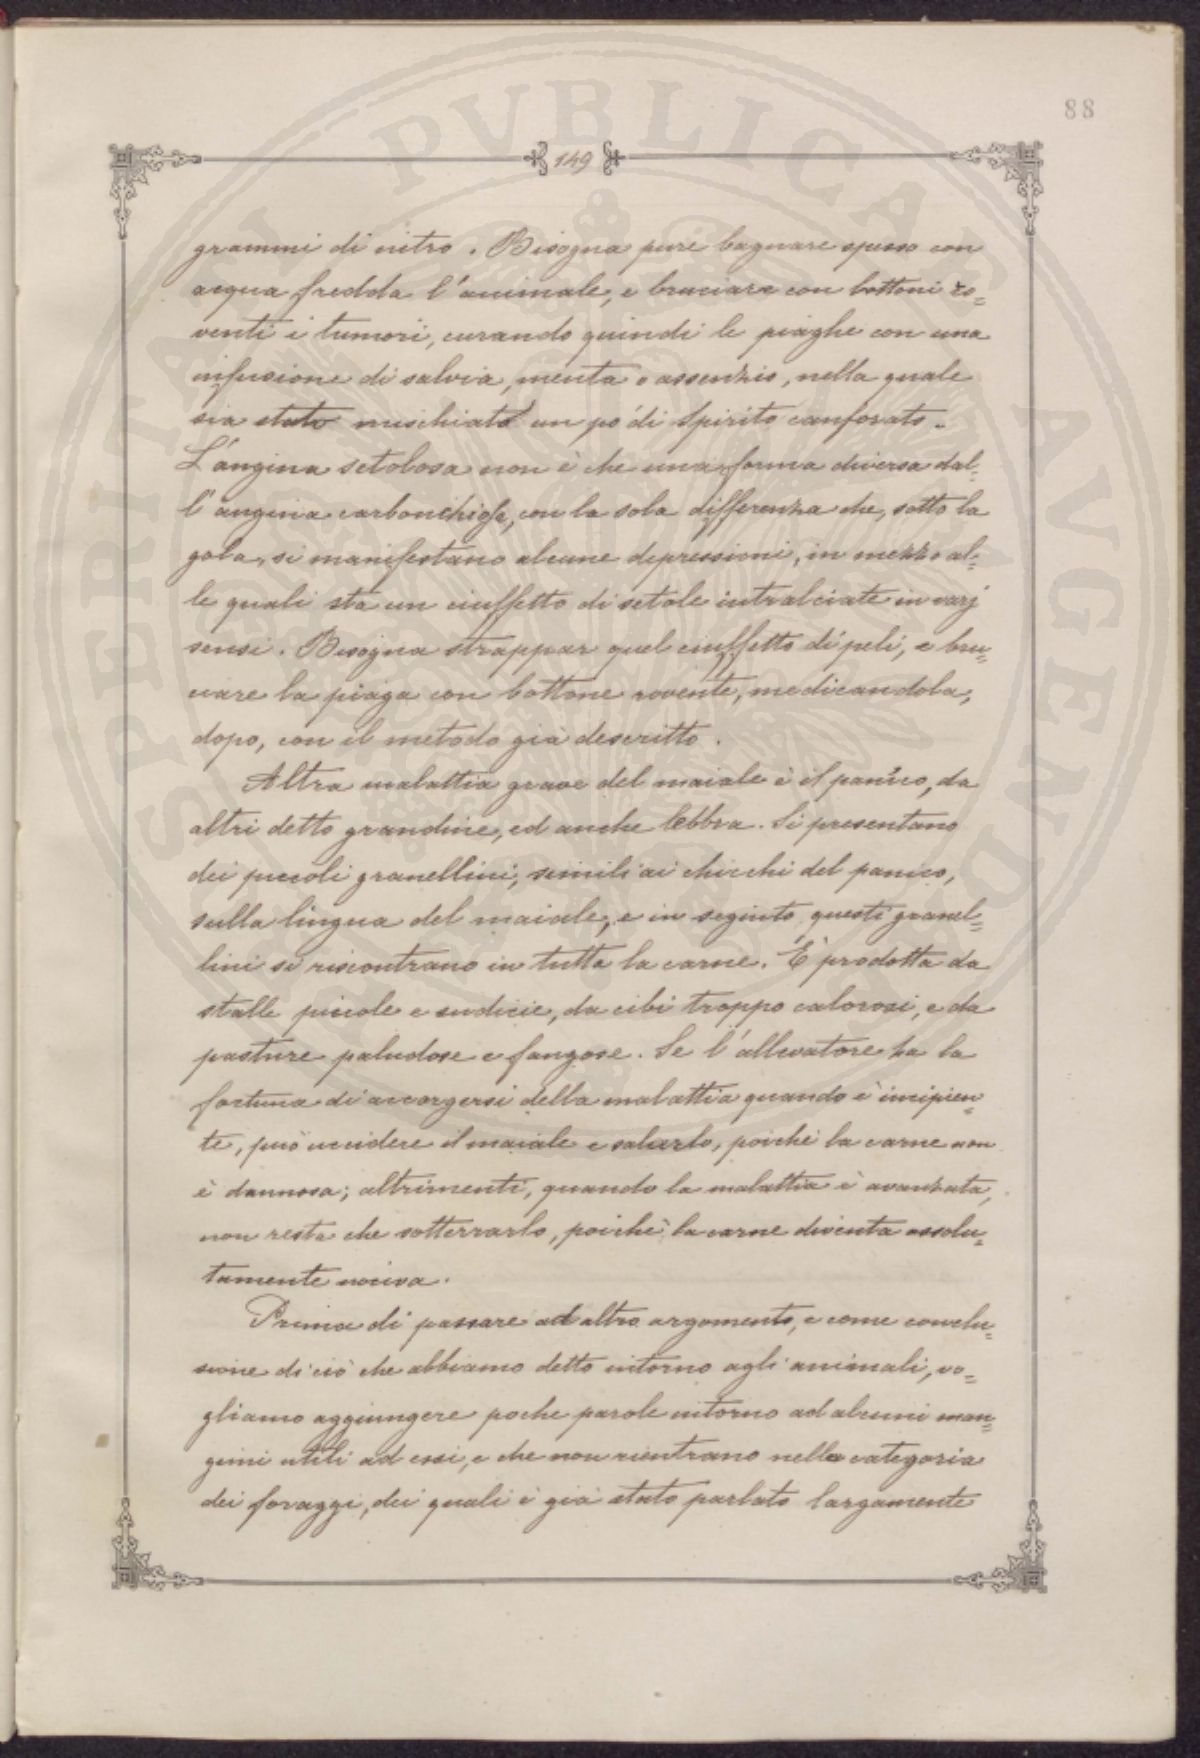 88
149
grammi di nitro. Bisogna pure bagnare spesso con
acqua fredda l'animale, e bruciare con bottoni ro=
venti i tumori, curando quindi le piaghe con una
infusione di salvia, menta o assenzio, nella quale
sia stato mischiato un po' di Spirito canforato.
L'angina setolosa non è che una forma diversa dal=
l'angina carbonchiosa, con la sola differenza che, sotto la
gola, si manifestano alcune depressioni, in mezzo al=
le quali sta un ciuffetto di setole intralciate in varj
sensi. Bisogna strappar quel ciuffetto di peli, e bru=
ciare la piaga con bottone rovente, medicandola,
dopo, con il metodo già descritto.
Altra malattia grave del maiale è il panico, da
altri detto grandine, ed anche lebbra. Si presentano
dei piccoli granellini, simili ai chicchi del panico,
sulla lingua del maiale, e in seguito questi granel=
lini si riscontrano in tutta la carne. È prodotta da
stalle piccole e sudicie, da cibi troppo calorosi, e da
pasture paludose e fangose. Se l'allevatore ha la
fortuna di accorgersi della malattia quando è incipien=
te, può uccidere il maiale e salarlo, poichè la carne non
è dannosa; altrimenti, quando la malattia è avanzata,
non resta che sotterrarlo, poichè la carne diventa assolu=
tamente nociva.
Prima di passare ad altro argomento, e come conclu=
sione di ciò che abbiamo detto intorno agli animali, vo=
gliamo aggiungere poche parole intorno ad alcuni man=
gimi utili ad essi, e che non rientrano nella categoria
dei foraggi, dei quali è già stato parlato largamente
SPERITAN PVBLICA AVGENDO